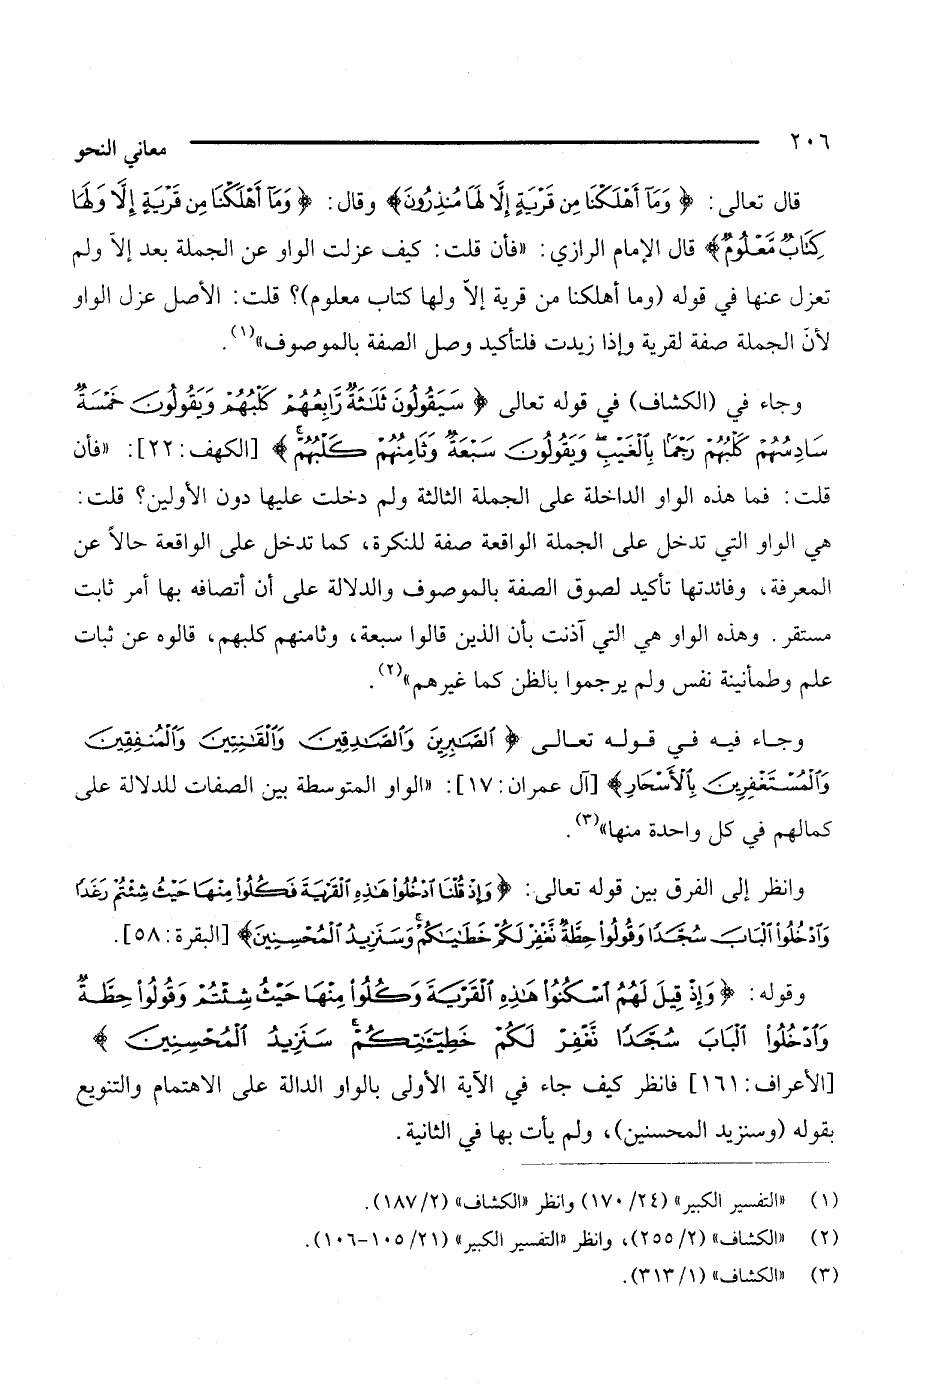 ٢٠٦ معاني النحو
قال تعالى: ﴿ وَمَآ أَهْلَكْنَا مِن قَرْيَةٍ إِلَّا لَهَا مُنذِرُونَ﴾ وقال: ﴿ وَمَآ أَهْلَكْنَا مِن قَرْيَةٍ إِلَّا وَلَهَا
كِتَابٌ مَّعْلُومٌ﴾ قال الإمام الرازي: «فأن قلت: كيف عزلت الواو عن الجملة بعد إلاّ ولم
تعزل عنها في قوله (وما أهلكنا من قرية إلاّ ولها كتاب معلوم)؟ قلت: الأصل عزل الواو
لأنّ الجملة صفة لقرية وإذا زيدت فلتأكيد وصل الصفة بالموصوف»(١).
وجاء في (الكشاف) في قوله تعالى ﴿ سَيَقُولُونَ ثَلَٰثَةٌ رَّابِعُهُمْ كَلْبُهُمْ وَيَقُولُونَ خَمْسَةٌ
سَادِسُهُمْ كَلْبُهُمْ رَجْمًۢا بِٱلْغَيْبِ ۖ وَيَقُولُونَ سَبْعَةٌ وَثَامِنُهُمْ كَلْبُهُمْ ۚ ﴾ [الكهف: ٢٢]: «فأن
قلت: فما هذه الواو الداخلة على الجملة الثالثة ولم دخلت عليها دون الأولين؟ قلت:
هي الواو التي تدخل على الجملة الواقعة صفة للنكرة، كما تدخل على الواقعة حالاً عن
المعرفة، وفائدتها تأكيد لصوق الصفة بالموصوف والدلالة على أن أتصافه بها أمر ثابت
مستقر. وهذه الواو هي التي آذنت بأن الذين قالوا سبعة، وثامنهم كلبهم، قالوه عن ثبات
علم وطمأنينة نفس ولم يرجموا بالظن كما غيرهم»(٢).
وجاء فيه في قوله تعالى ﴿ ٱلصَّٰبِرِينَ وَٱلصَّٰدِقِينَ وَٱلْقَٰنِتِينَ وَٱلْمُنفِقِينَ
وَٱلْمُسْتَغْفِرِينَ بِٱلْأَسْحَارِ﴾ [آل عمران: ١٧]: «الواو المتوسطة بين الصفات للدلالة على
كمالهم في كل واحدة منها»(٣).
وانظر إلى الفرق بين قوله تعالى: ﴿ وَإِذْ قُلْنَا ٱدْخُلُوا۟ هَٰذِهِ ٱلْقَرْيَةَ فَكُلُوا۟ مِنْهَا حَيْثُ شِئْتُمْ رَغَدًا
وَٱدْخُلُوا۟ ٱلْبَابَ سُجَّدًا وَقُولُوا۟ حِطَّةٌ نَّغْفِرْ لَكُمْ خَطَٰيَٰكُمْ ۚ وَسَنَزِيدُ ٱلْمُحْسِنِينَ﴾ [البقرة: ٥٨].
وقوله: ﴿ وَإِذْ قِيلَ لَهُمُ ٱسْكُنُوا۟ هَٰذِهِ ٱلْقَرْيَةَ وَكُلُوا۟ مِنْهَا حَيْثُ شِئْتُمْ وَقُولُوا۟ حِطَّةٌ
وَٱدْخُلُوا۟ ٱلْبَابَ سُجَّدًا نَّغْفِرْ لَكُمْ خَطِيٓـَٰٔتِكُمْ ۚ سَنَزِيدُ ٱلْمُحْسِنِينَ ﴾
[الأعراف: ١٦١] فانظر كيف جاء في الآية الأولى بالواو الدالة على الاهتمام والتنويع
بقوله (وسنزيد المحسنين)، ولم يأت بها في الثانية.
(١) «التفسير الكبير» (٢٤/ ١٧٠) وانظر «الكشاف» (٢/ ١٨٧).
(٢) «الكشاف» (٢/ ٢٥٥)، وانظر «التفسير الكبير» (٢١/ ١٠٥-١٠٦).
(٣) «الكشاف» (١/ ٣١٣).